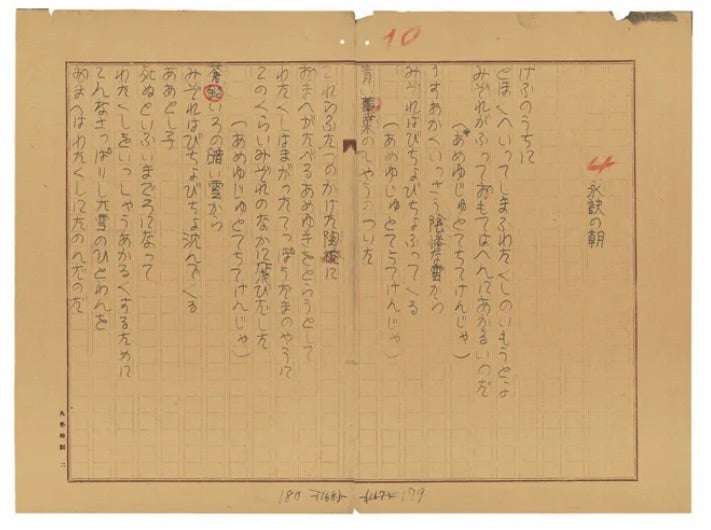 10
永訣の朝
けふのうちに
とほくへいってしまふわたくしのいもうとよ
みぞれがふっておもてはへんにあかるいのだ
(あめゆじゅとてちてけんじゃ)
うすあかくいっさう陰惨な雲から
みぞれはびちょびちょふってくる
(あめゆじゅとてちてけんじゃ)
青い蓴菜のもやうのついた
これらふたつのかけた陶椀に
おまへがたべるあめゆきをとらうとして
わたくしはまがったてっぽうだまのやうに
このくらいみぞれのなかに飛びだした
(あめゆじゅとてちてけんじゃ)
蒼鉛いろの暗い雲から
みぞれはびちょびちょ沈んでくる
ああとし子
死ぬといふいまごろになって
わたくしをいっしゃうあかるくするために
こんなさっぱりした雪のひとわんを
おまへはわたくしにたのんだのだ
丸善特製 二
180 179